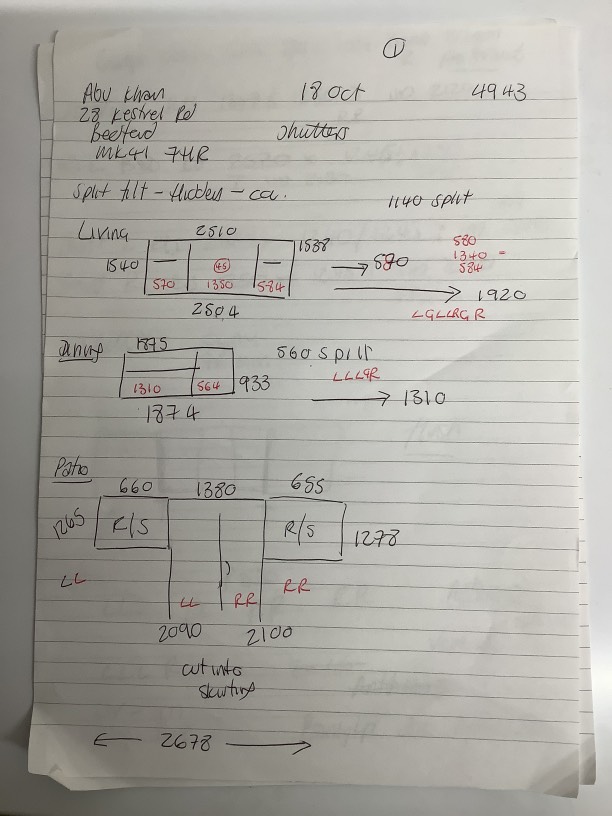 ①
Abu Khan 18 Oct 4943
28 Kestrel Rd
Bedford Shutters
MK41 7HR
Split tilt - Hidden - ca.
1140 split
Living 2510 1538
1540 570 45 1350 584 → 580 580 1340 584
2504 → 1920
LGLLRGR
Dining 1875 560 split
1310 564 933 LLLGR → 1310
1874
Patio
660 1380 655
1265 R/S R/S 1278
LL LL RR RR
2090 2100
cut into
skirting
← 2678 →